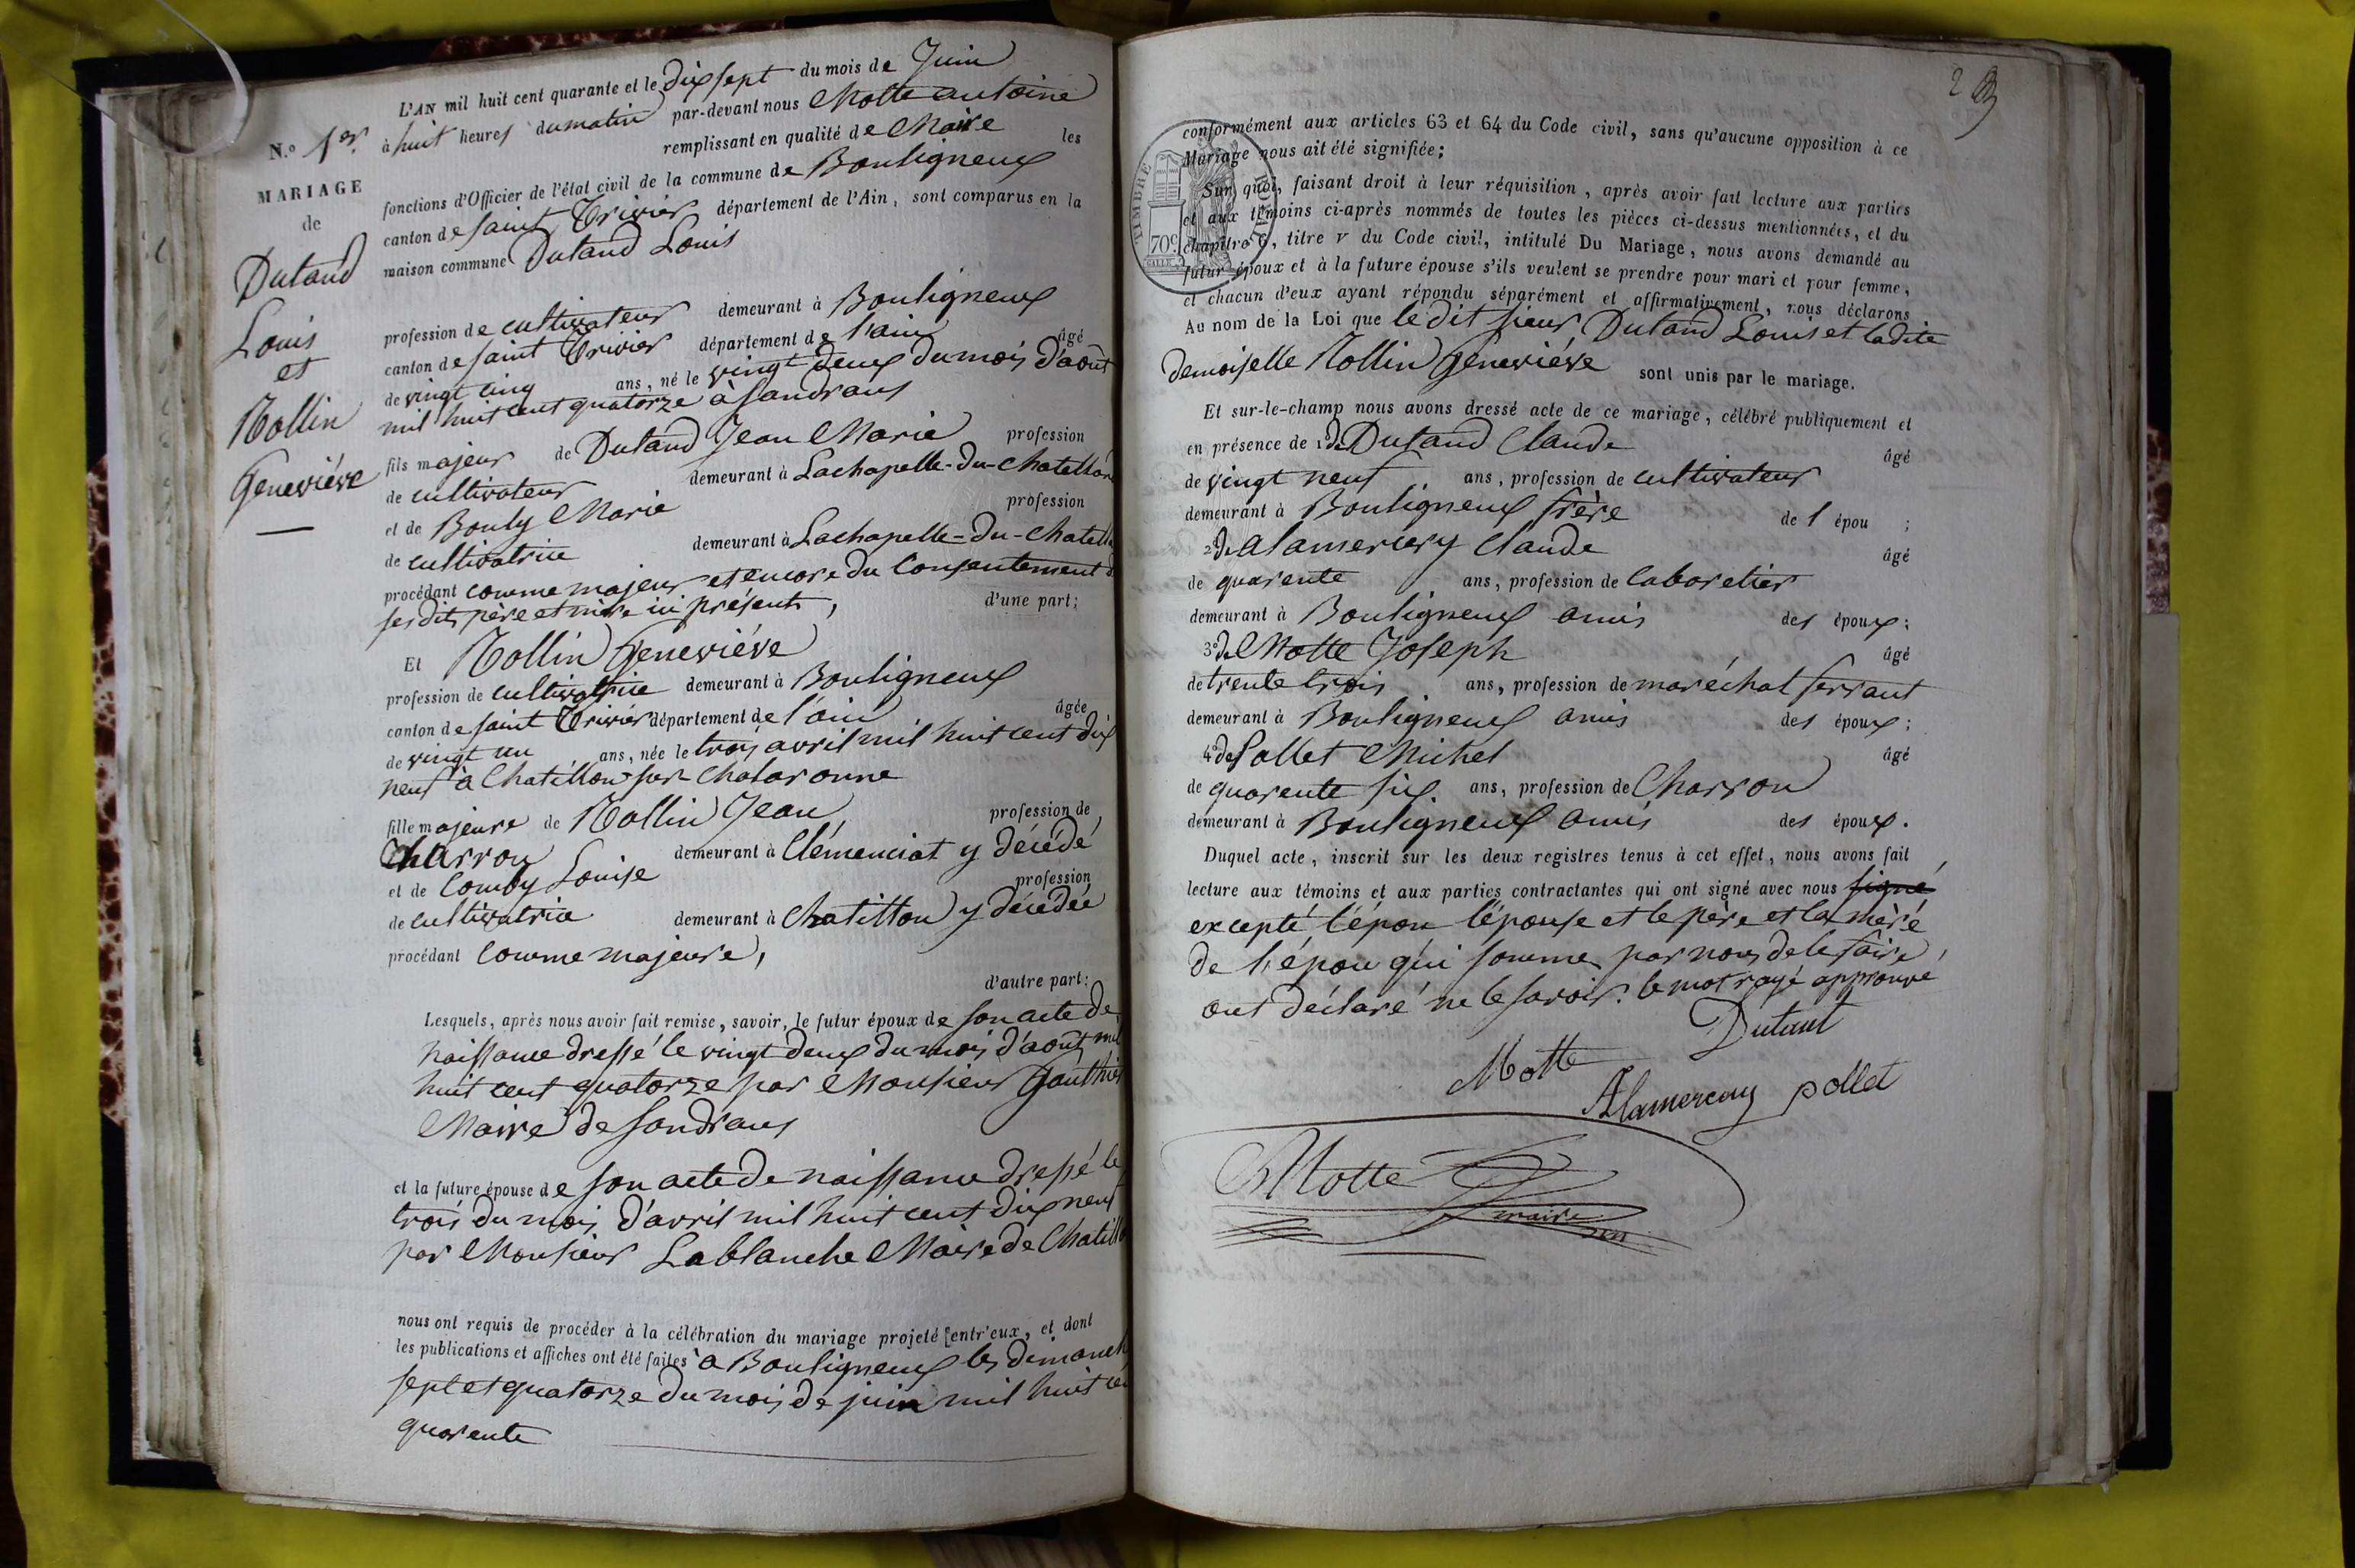 L'AN mil huit cent quarante et le dix sept du mois de Juin
N.º 1er à huit heures du matin par-devant nous Motte antoine
remplissant en qualité de Maire les
MARIAGE
de
Dutand
Louis
et
Mollin
Geneviéve
fonctions d'Officier de l'état civil de la commune de Bouligneux
canton de saint Trivier département de l'Ain, sont comparus en la
maison commune Dutand Louis
profession de cultivateur demeurant à Bouligneux
canton de saint Trivier département de l'ain âgé
de vingt cinq ans, né le vingt deux du mois d'août
mil huit cent quatorze à Sandrans
fils majeur de Dutand Jean Marie profession
de cultivateur demeurant à Lachapelle-du-Chatellard
et de Bouly Marie profession
de cultivatrice demeurant à Lachapelle-du-Chatell
procédant comme majeur et encore du Consentement de
ses dits père et mère ici présents, d'une part;
Et Mollin Geneviéve
profession de cultivatrice demeurant à Bouligneux
canton de saint Trivier département de l'ain âgée
de vingt un ans, née le trois avril mil huit cent dix
neuf à Chatillon sur Chalaronne
fille majeure de Mollin Jean, profession de
Charron demeurant à Clémenciat y décédé
et de Comby Louise profession
de cultivatrice demeurant à Chatillon y décédée
procédant comme majeure,
d'autre part:
Lesquels, après nous avoir fait remise, savoir, le futur époux de son acte de
naissance dressé le vingt deux du mois d'août mil
huit cent quatorze par Monsieur Gauthier
Maire de Sandrans
et la future épouse de son acte de naissance dressé le
trois du mois d'avril mil huit cent dix neuf
par Monsieur Lablanche Maire de Chatillo
nous ont requis de procéder à la célébration du mariage projeté entr'eux, et dont
les publications et affiches ont été faites à Bouligneux les dimanch
sept et quatorze du mois de juin mil huit ce
quarente
2
TIMBRE ROYAL
70c
conformément aux articles 63 et 64 du Code civil, sans qu'aucune opposition à ce
Mariage nous ait été signifiée;
Sur quoi, faisant droit à leur réquisition, après avoir fait lecture aux parties
et aux témoins ci-après nommés de toutes les pièces ci-dessus mentionnées, et du
chapitre 6, titre V du Code civil, intitulé Du Mariage, nous avons demandé au
futur époux et à la future épouse s'ils veulent se prendre pour mari et pour femme,
et chacun d'eux ayant répondu séparément et affirmativement, nous déclarons
Au nom de la Loi que le dit sieur Dutand Louis et ladite
demoiselle Mollin Geneviéve sont unis par le mariage.
Et sur-le-champ nous avons dressé acte de ce mariage, célébré publiquement et
en présence de 1º de Dutand Claude âgé
de vingt neuf ans, profession de cultivateur
demeurant à Bouligneux frère de l épou ;
2º de alamercery Claude âgé
de quarente ans, profession de Cabaretier
demeurant à Bouligneux amis des époux;
3º de Motte Joseph âgé
de trente trois ans, profession de maréchal ferrant
demeurant à Bouligneux amis des époux;
4º de Pollet Michel âgé
de quarente six ans, profession de Charron
demeurant à Bouligneux amis des époux.
Duquel acte, inscrit sur les deux registres tenus à cet effet, nous avons fait
lecture aux témoins et aux parties contractantes qui ont signé avec nous signé
excepté l'épou l'épouse et le père et la mère
de l'épou qui somme par nous de le faire,
ont déclaré ne le savoir. le mot rayé approuvé
Dutant
Motte
Alamercery pollet
Motte
maire